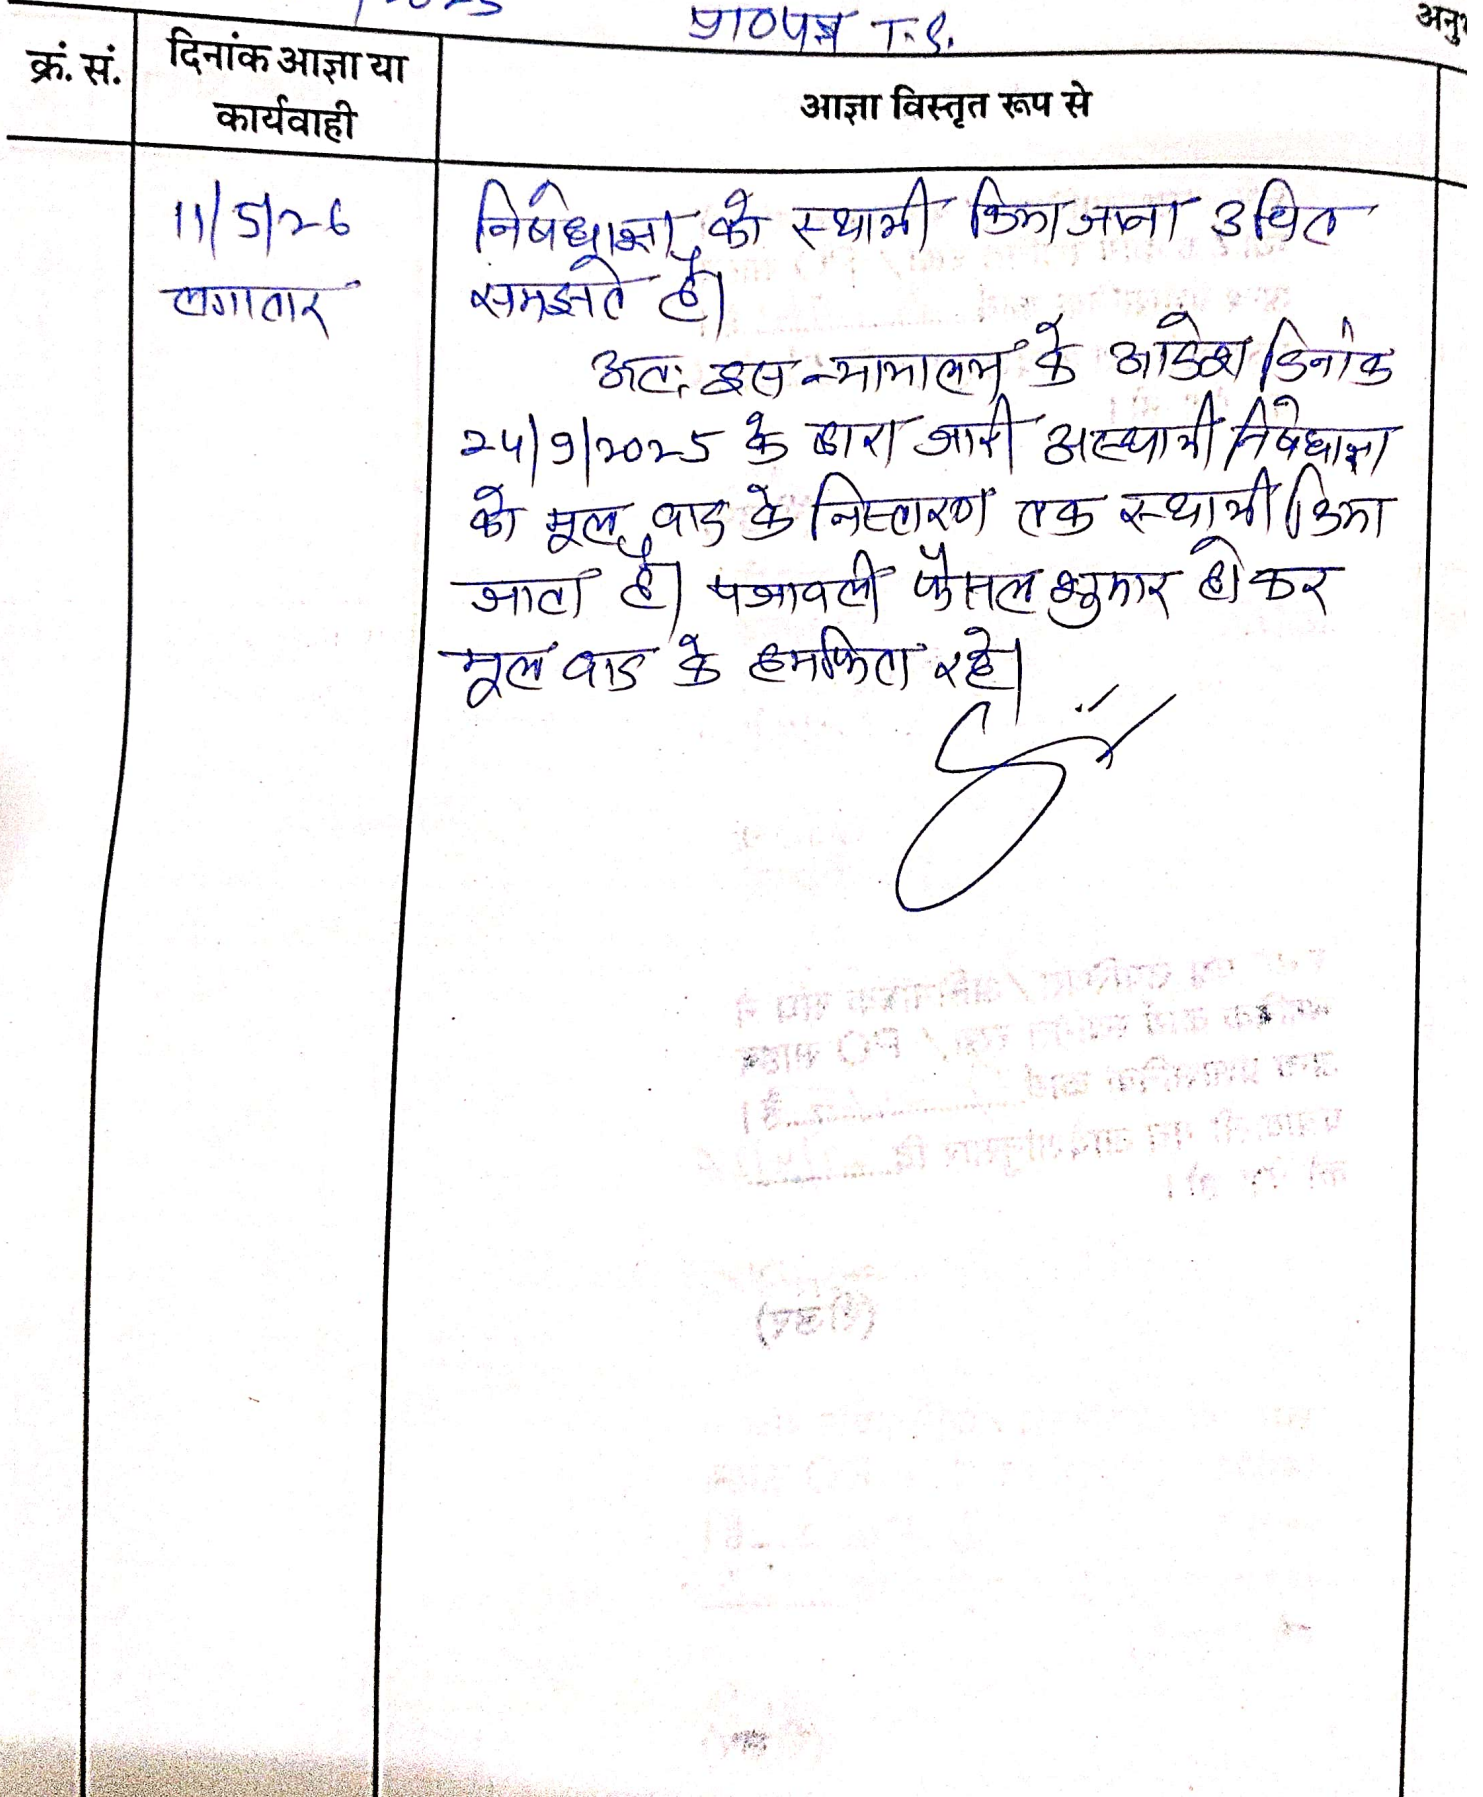 2025
प्रा०पत्र T.S.
अनु
क्रं. सं.
दिनांक आज्ञा या
कार्यवाही
आज्ञा विस्तृत रूप से
11/5/26
लगातार
निषेधाज्ञा को स्थायी किया जाना उचित
समझते है।
अतः इस न्यायालय के आदेश दिनांक
24/9/2025 के द्वारा जारी अस्थायी निषेधाज्ञा
को मूल वाद के निस्तारण तक स्थायी किया
जाता है। पत्रावली फैसल शुमार होकर
मूल वाद के हमफिता रहे।